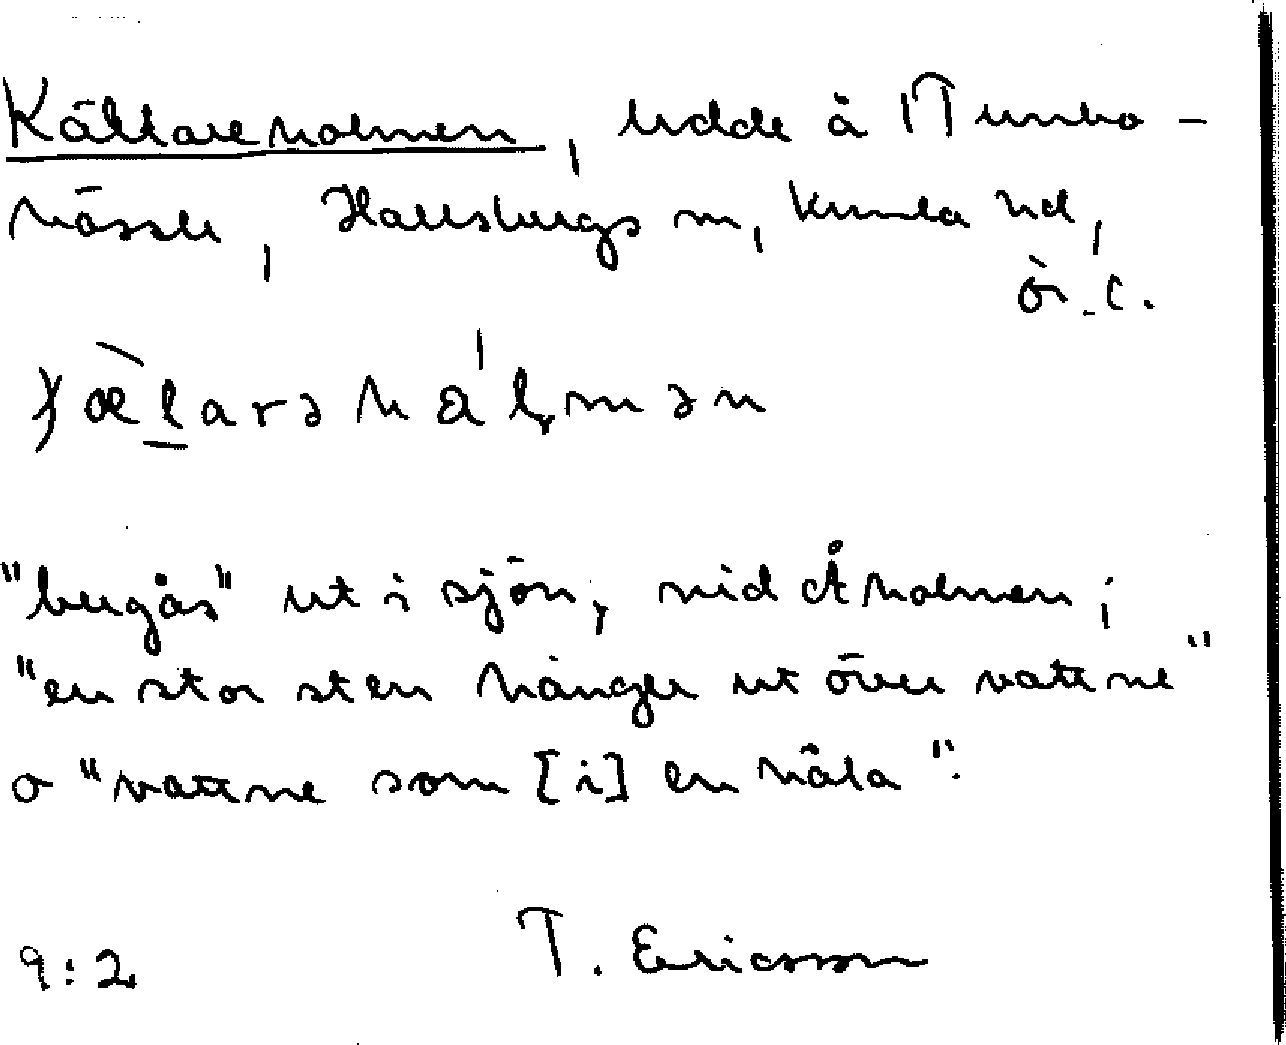 Källareholmen, udde å Tunbo-
hässle, Hallsbergs sn, Kumla hd,
ör. l.
ɟæ̀l̲arəhål̥mən
"bergås" ut i sjön, vid Åholmen;
"en stor sten hänger ut över vattne"
o "vattne som [i] en håla".
9:2 T. Ericsson